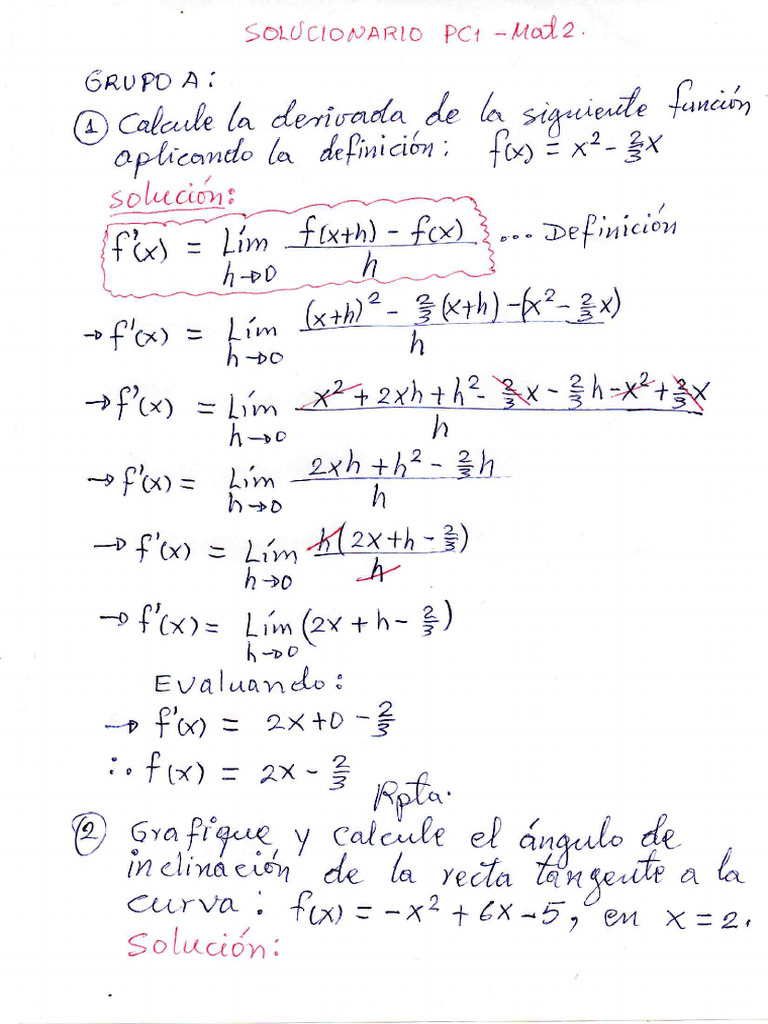 SOLUCIONARIO PC1 - Mat 2.
GRUPO A:
① Calcule la derivada de la siguiente función
aplicando la definición: f(x) = x² - 2/3 x
Solución:
f'(x) = Lím h→0 (f(x+h) - f(x))/h ... Definición
→ f'(x) = Lím h→0 ((x+h)² - 2/3 (x+h) - (x² - 2/3 x))/h
→ f'(x) = Lím h→0 (x² + 2xh + h² - 2/3 x - 2/3 h - x² + 2/3 x)/h
→ f'(x) = Lím h→0 (2xh + h² - 2/3 h)/h
→ f'(x) = Lím h→0 h(2x + h - 2/3)/h
→ f'(x) = Lím h→0 (2x + h - 2/3)
Evaluando:
→ f'(x) = 2x + 0 - 2/3
∴ f(x) = 2x - 2/3
Rpta.
② Grafique y calcule el ángulo de
inclinación de la recta tangente a la
curva: f(x) = -x² + 6x - 5, en x = 2.
Solución: